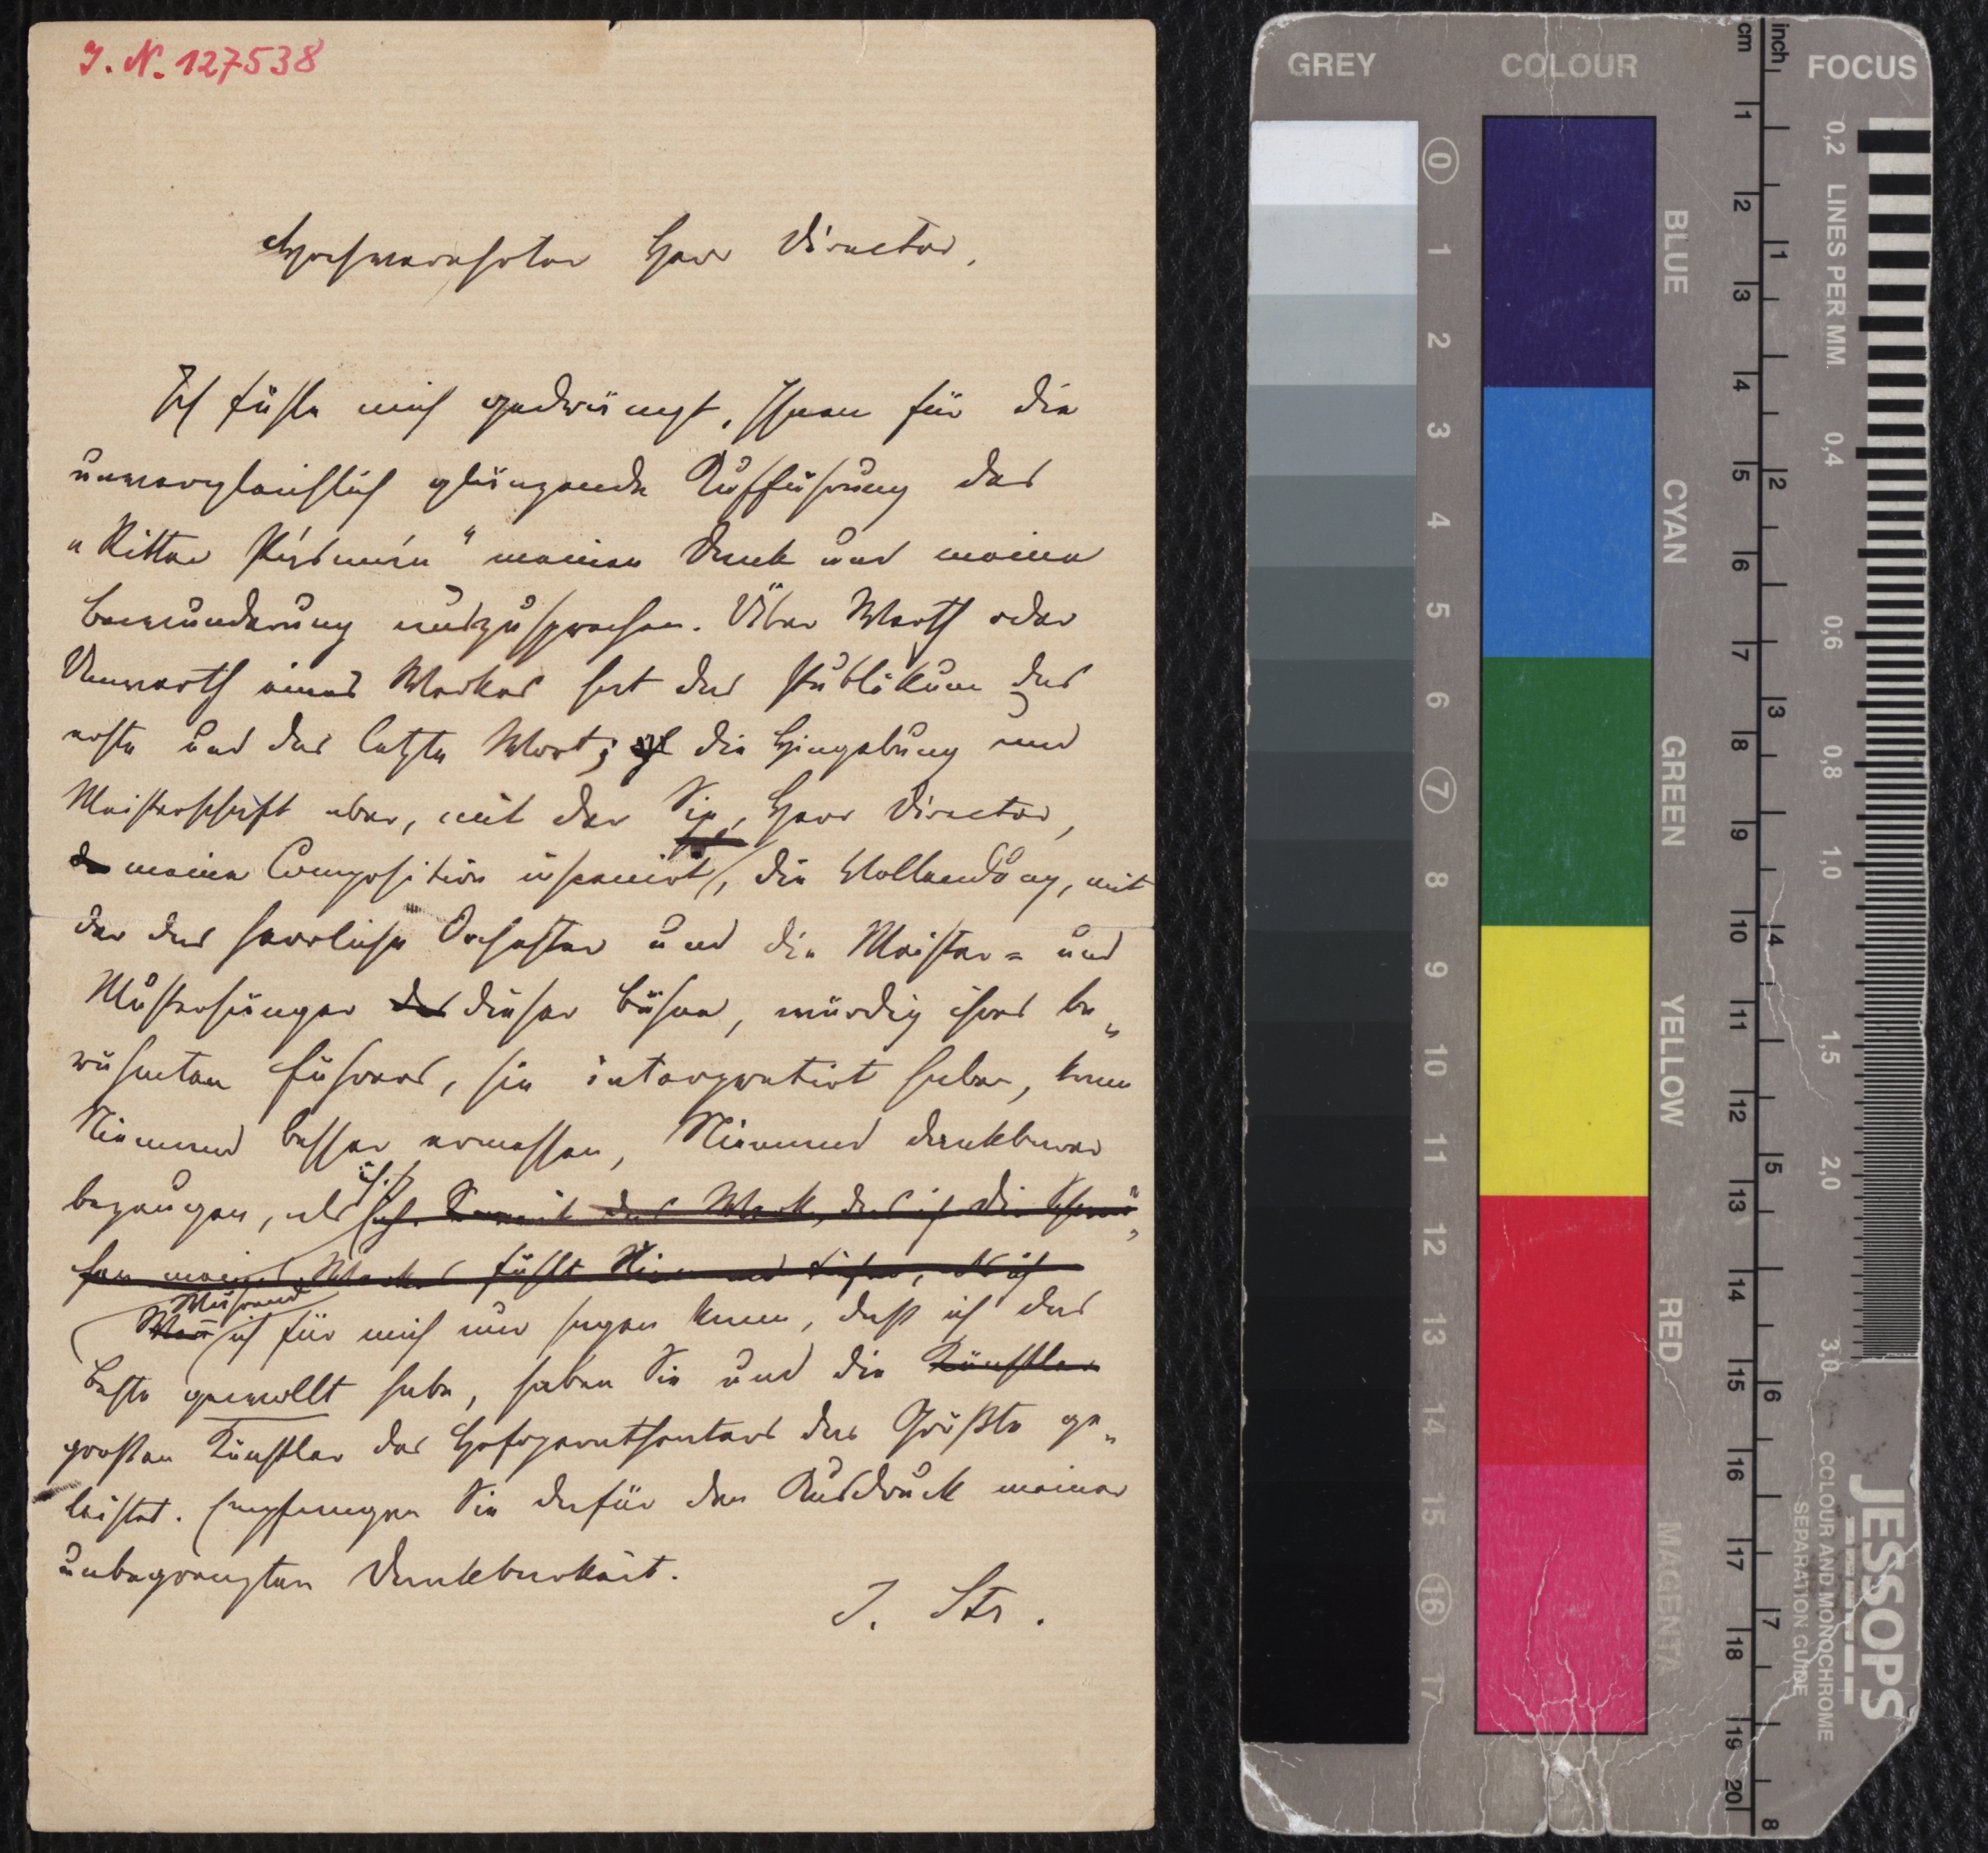 I. N. 127538
Hochverehrter Herr Director,
Ich fühle mich gedrängt, Ihnen für die
unvergleichlich glänzende Aufführung des
"Ritter Pásmán" meinen Dank und meine
Bewunderung auszusprechen. Über Werth oder
Unwerth eines Werkes hat das Publikum das
erste und das letzte Wort; die Hingebung und
Meisterschaft aber, mit der Sie, Herr Director,
meine Composition inscenirt, die Vollendung, mit
der das herrliche Orchester und die Meister= und
Mustersänger des dieser Bühne, würdig ihres be„
währten Führers, sie interpretirt haben, kann
Niemand besser ermessen, Niemand dankbarer
bezeugen, als ich. das Werk, das ich die
meines Werkes fühlt Niemand als ich
Während
ich für mich nur sagen kann, daß ich das
Beste gewollt habe, haben Sie und die Künstler
großen Künstler des Hofoperntheaters das Größte ge„
leistet. Empfangen Sie dafür den Ausdruck meiner
unbegrenzten Dankbarkeit.
J. Str.
GREY COLOUR FOCUS
cm inch
0 1 2 3 4 5 6 7 8 9 10 11 12 13 14 15 16 17
BLUE CYAN GREEN YELLOW RED MAGENTA
1 2 3 4 5 6 7 8 9 10 11 12 13 14 15 16 17 18 19 20
1 2 3 4 5 6 7 8
0,2 LINES PER MM. 0,4 0,6 0,8 1,0 1,5 2,0 3,0
JESSOPS
COLOUR AND MONOCHROME
SEPARATION GUIDE